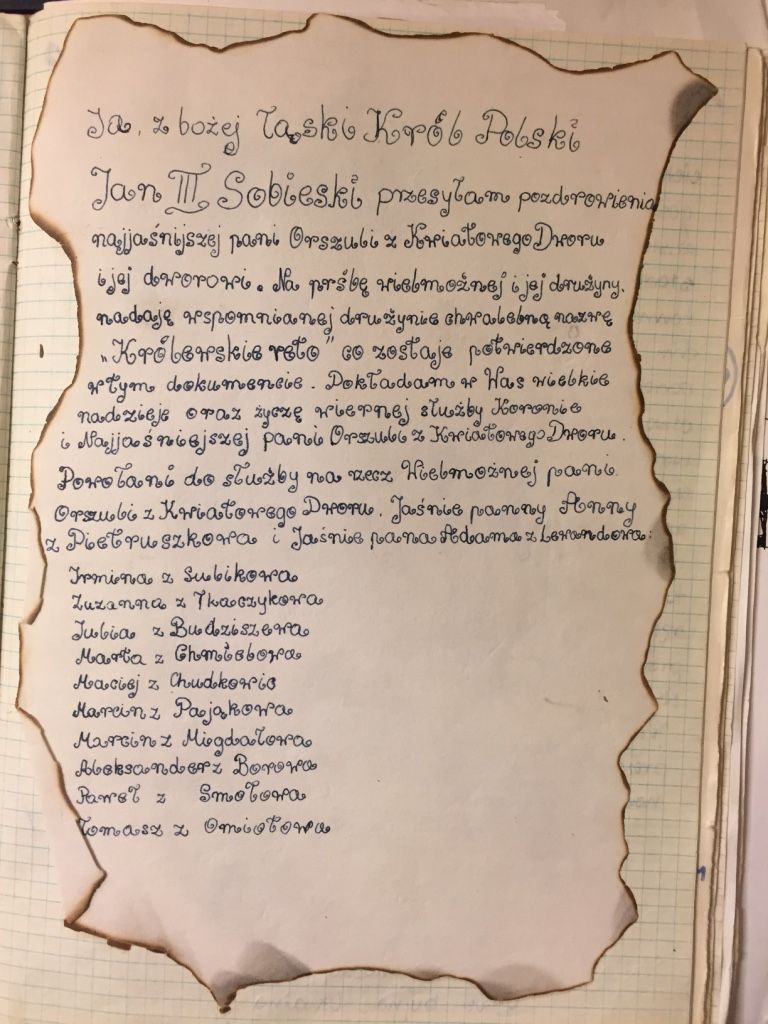 Ja, z bożej łąski Król Polski
Jan III Sobieski przesyłam pozdrowienia
najjaśnijszej pani Orszuli z Kwiatowego Dworu
i jej dworowi. Na prśbę wielmożnej i jej drużyny.
nadaję wspomnianej drużynie chwalebną nazwę
„Królewskie veto" co zostaje potwierdzone
w tym dokumencie. Pokładam w Was wielkie
nadzieje oraz życzę wiernej służby Koronie
i Najjaśniejszej pani Orszuli z Kwiatowego Dworu.
Powołani do służby na rzecz Wielmożnej pani
Orszuli z Kwiatowego Dworu. Jaśnie panny Anny
z Pietruszkowa i Jaśnie pana Adama z Lewandowa:
Irmina z Sulikowa
Zuzanna z Tkaczykowa
Julia z Budziszewa
Marta z Chmielowa
Maciej z Chudkowic
Marcin z Pająkowa
Marcin z Migdałowa
Aleksander z Borowa
Paweł z Smołowa
Tomasz z Omiotowa